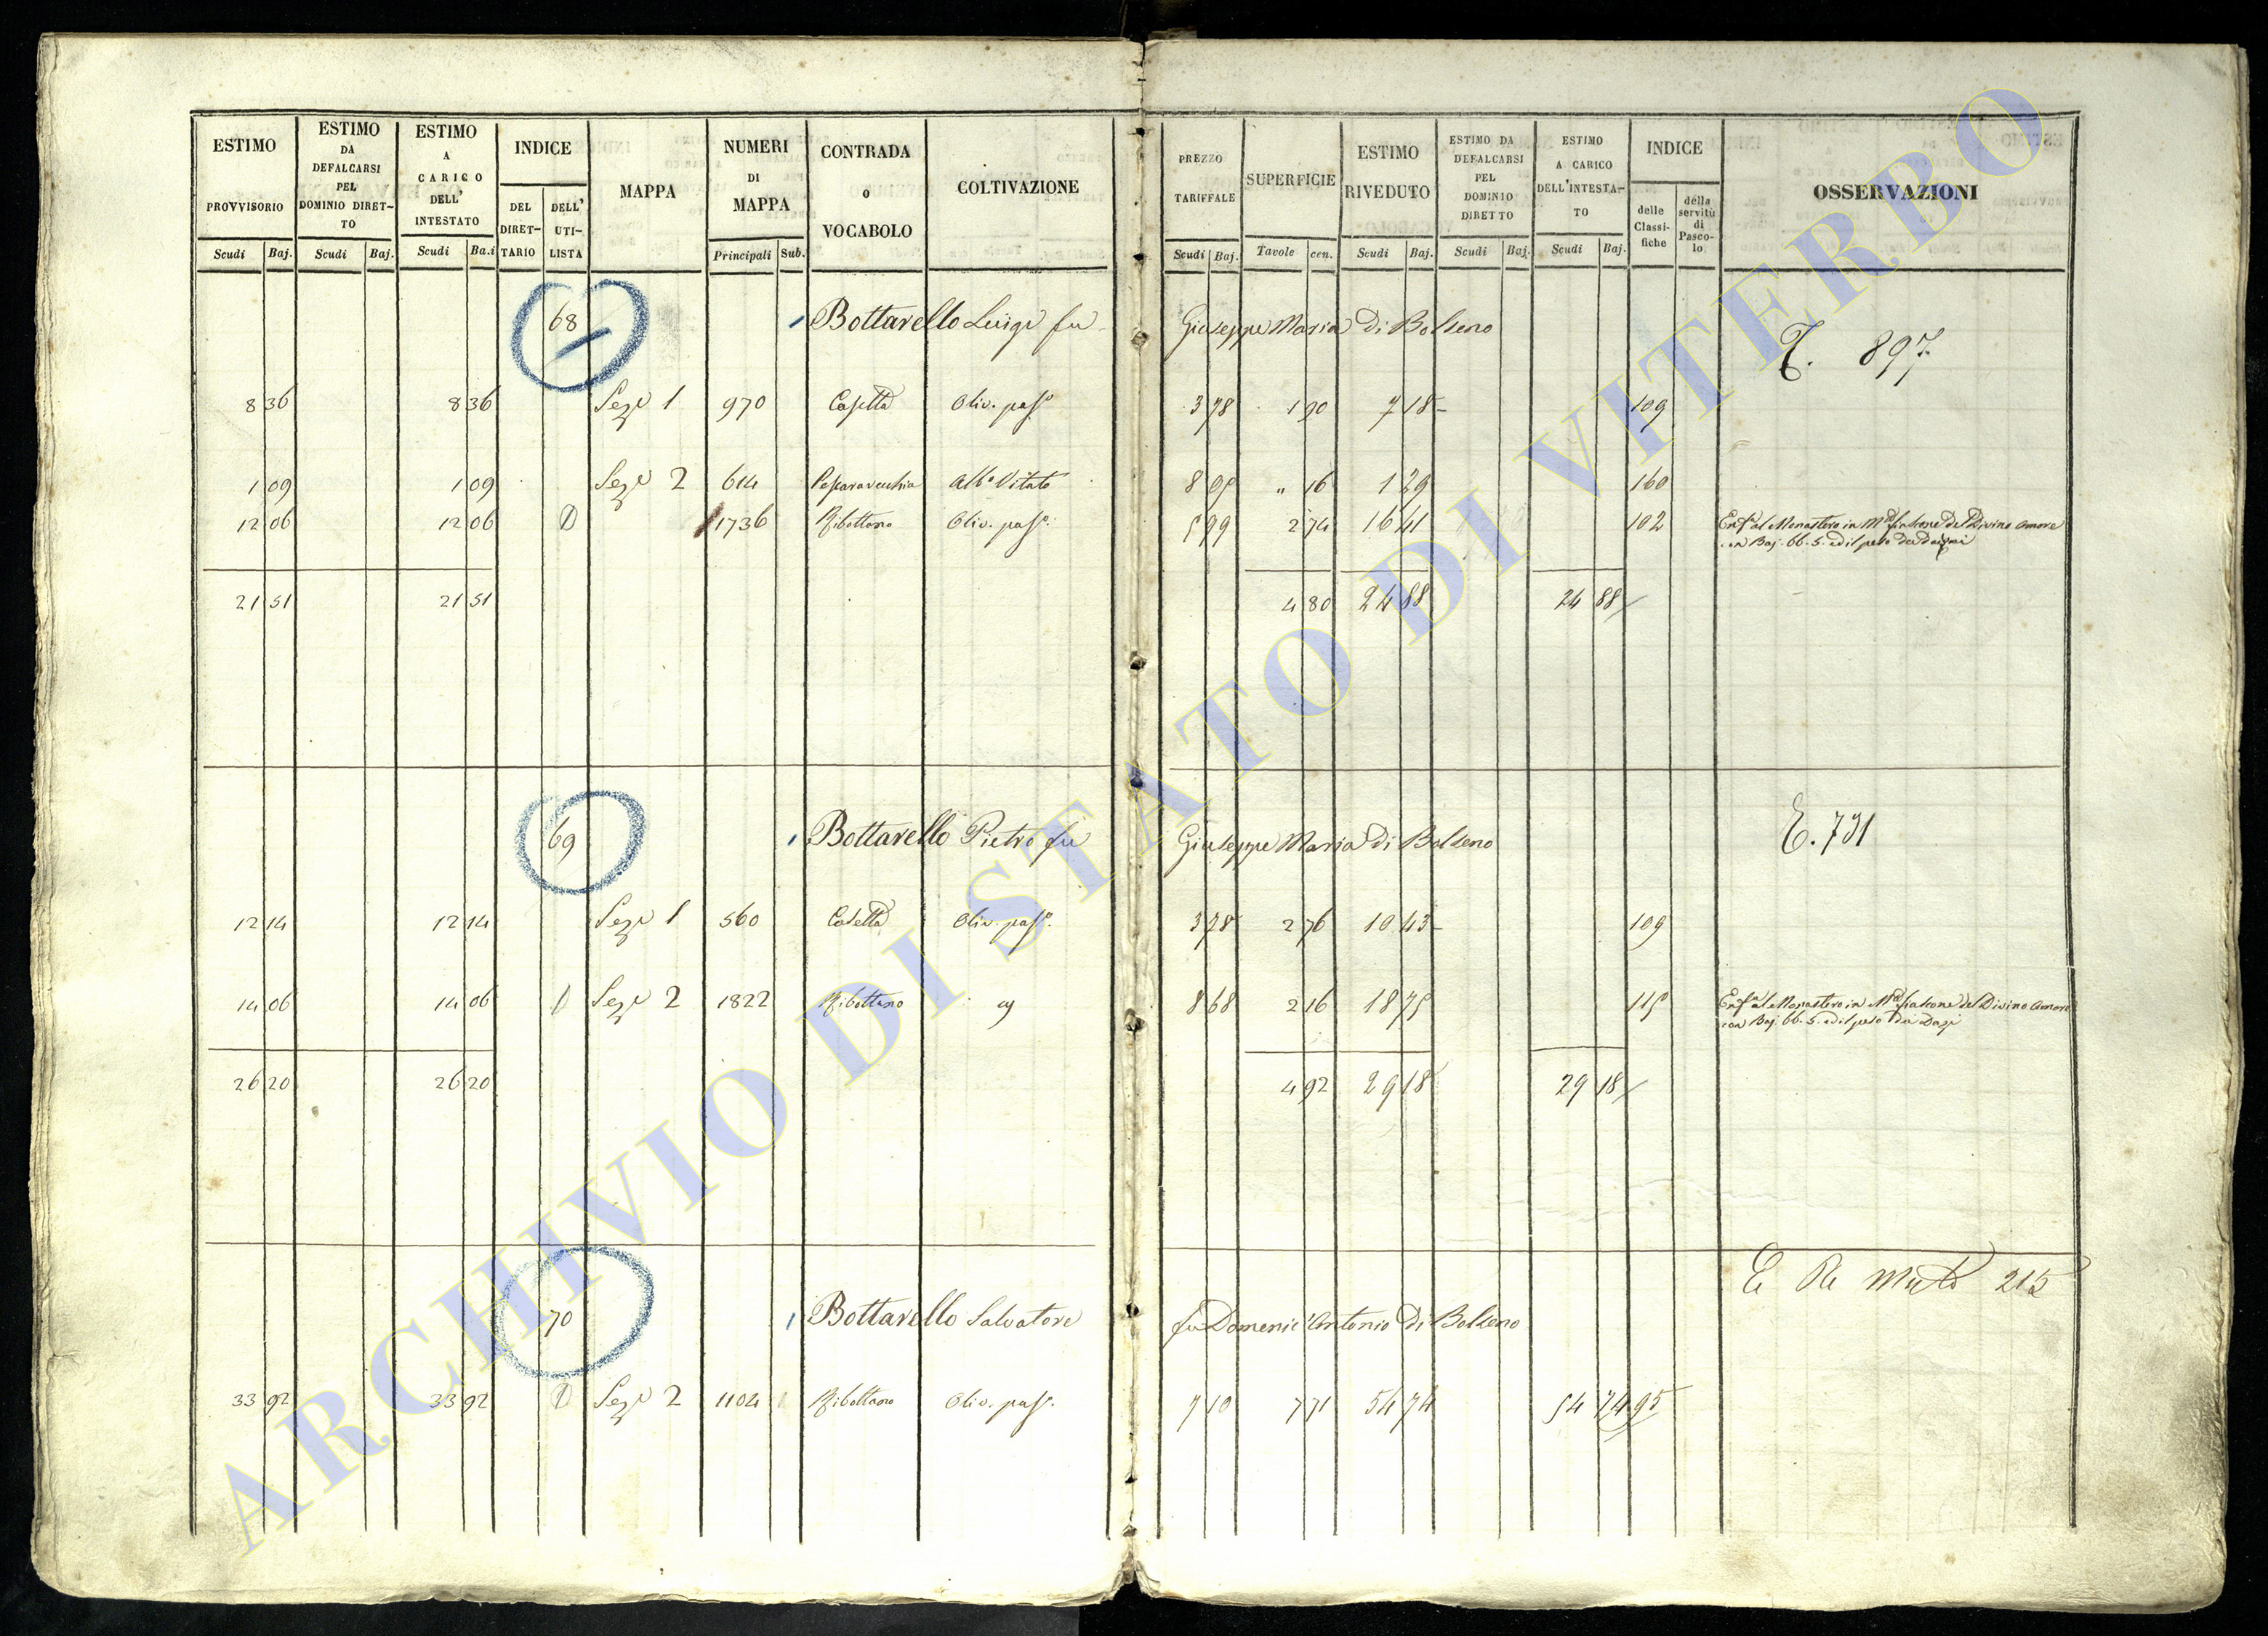 ESTIMO PROVVISORIO Scudi Baj.
ESTIMO DA DEFALCARSI PEL DOMINIO DIRETTO Scudi Baj.
ESTIMO A CARICO DELL' INTESTATO Scudi Ba.i
INDICE DEL DIRETTARIO DELL' UTILISTA
MAPPA
NUMERI DI MAPPA Principali Sub.
CONTRADA O VOCABOLO
COLTIVAZIONE
PREZZO TARIFFALE Scudi Baj.
SUPERFICIE Tavole cen.
ESTIMO RIVEDUTO Scudi Baj.
ESTIMO DA DEFALCARSI PEL DOMINIO DIRETTO Scudi Baj.
ESTIMO A CARICO DELL'INTESTATO Scudi Baj.
INDICE delle Classifiche della servitù di Pascolo
OSSERVAZIONI
68 Bottarello Luigi fu Giuseppe Maria di Bolseno
897
8 36 8 36 Sez. 1 970 Casetta Oliv. pas. 3 78 1 90 7 18 109
1 09 1 09 Sez. 2 614 Pescaravecchia Alb. Vitato 8 05 " 16 1 29 160
12 06 12 06 1736 Ribottano Oliv. pas. 5 99 2 74 16 41 102 Enf. al Monastero in M. fiascone del Divino Amore
con Baj. 66.5. ed il peso dei dazi
21 51 21 51 4 80 24 88 24 88
69 Bottarello Pietro fu Giuseppe Maria di Bolseno
E. 731
12 14 12 14 Sez. 1 560 Casetta Oliv. pas. 3 78 2 76 10 43 109
14 06 14 06 Sez. 2 1822 Ribottano 8 68 2 16 18 75 115 Enf. al Monastero in M. fiascone del Divino Amore
con Baj. 66.5. ed il peso dei Dazi
26 20 26 20 4 92 29 18 29 18
215
70 Bottarello Salvatore fu Domenic'Antonio di Bolseno
33 92 33 92 Sez. 2 1104 Ribottano Oliv. pas. 7 10 7 71 54 74 54 74 95
ARCHIVIO DI STATO DI VITERBO